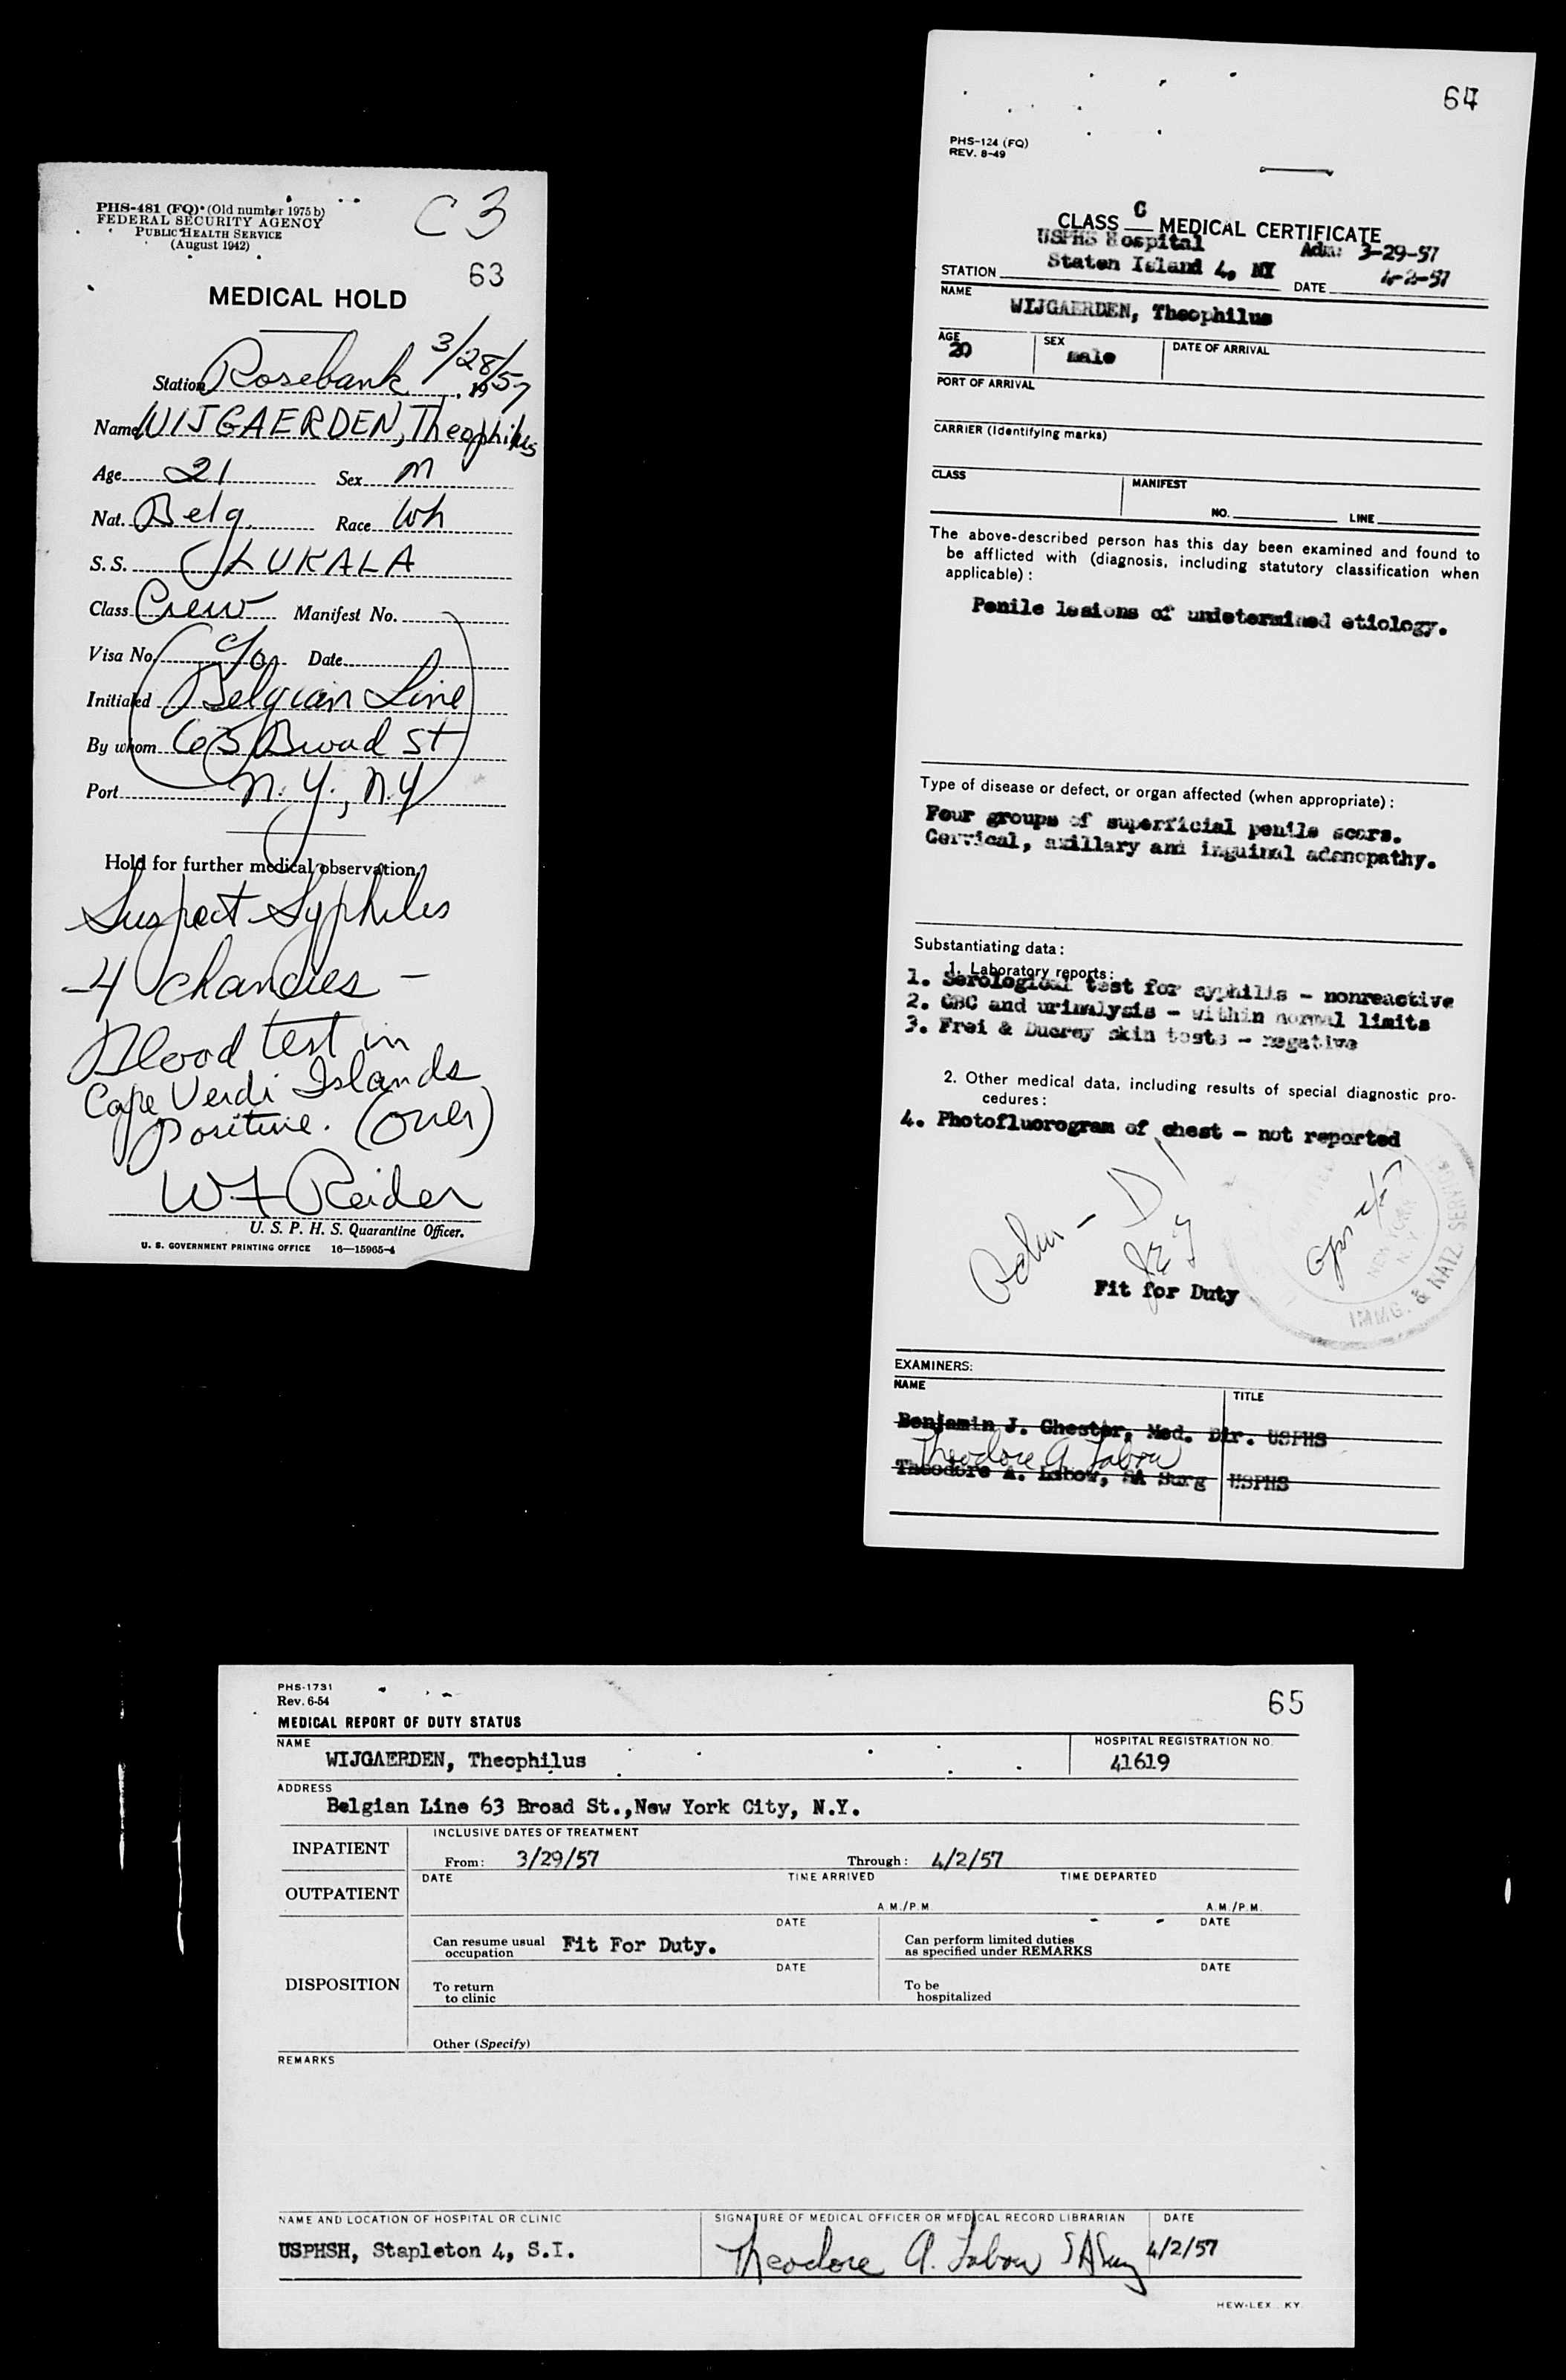 PHS-481 (FQ) (Old number 1975 b)
FEDERAL SECURITY AGENCY
PUBLIC HEALTH SERVICE
(August 1942)
C 3
63
MEDICAL HOLD
Station Rosebank 3/28/57, 19
Name WIJGAERDEN, Theophilus
Age 21 Sex M
Nat. Belg. Race Wh
S. S. LUKALA
Class Crew Manifest No.
Visa No. c/o Date
Initialed Belgian Line
By whom 63 Broad St
Port N.Y., N.Y
Hold for further medical observation,
Suspect Syphilis
-4 chancres -
Blood test in
Cape Verdi Islands
positive. (over)
W F Reider
U. S. P. H. S. Quarantine Officer.
U. S. GOVERNMENT PRINTING OFFICE 16—15965-4
64
PHS-124 (FQ)
REV. 8-49
CLASS C MEDICAL CERTIFICATE
USPHS Hospital Adm: 3-29-57
STATION Staten Island 4, NY DATE 4-2-57
NAME
WIJGAERDEN, Theophilus
AGE SEX DATE OF ARRIVAL
20 male
PORT OF ARRIVAL
CARRIER (Identifying marks)
CLASS MANIFEST
NO. LINE
The above-described person has this day been examined and found to
be afflicted with (diagnosis, including statutory classification when
applicable) :
Penile lesions of undetermined etiology.
Type of disease or defect, or organ affected (when appropriate) :
Four groups of superficial penile scars.
Cervical, axillary and inguinal adenopathy.
Substantiating data :
1. Laboratory reports :
1. Serological test for syphilis - nonreactive
2. CBC and urinalysis - within normal limits
3. Frei & Ducrey skin tests - negative
2. Other medical data, including results of special diagnostic pro-
cedures :
4. Photofluorogram of chest - not reported
Fit for Duty
NEW YORK
N. Y.
IMMG. & NATZ. SERVICE
EXAMINERS:
NAME TITLE
Benjamin J. Chester, Med. Dir. USPHS
Theodore A. Labow
Theodore A. Labow, SA Surg USPHS
PHS-1731
Rev. 6-54
65
MEDICAL REPORT OF DUTY STATUS
NAME HOSPITAL REGISTRATION NO.
WIJGAERDEN, Theophilus 41619
ADDRESS
Belgian Line 63 Broad St.,New York City, N.Y.
INPATIENT INCLUSIVE DATES OF TREATMENT
From: 3/29/57 Through: 4/2/57
OUTPATIENT DATE TIME ARRIVED TIME DEPARTED
A.M./P.M. A.M./P.M.
DISPOSITION
DATE DATE
Can resume usual occupation Fit For Duty. Can perform limited duties as specified under REMARKS
DATE DATE
To return to clinic To be hospitalized
Other (Specify)
REMARKS
NAME AND LOCATION OF HOSPITAL OR CLINIC SIGNATURE OF MEDICAL OFFICER OR MEDICAL RECORD LIBRARIAN DATE
USPHSH, Stapleton 4, S.I. Theodore A. Labow SA Surg 4/2/57
HEW-LEX., KY.